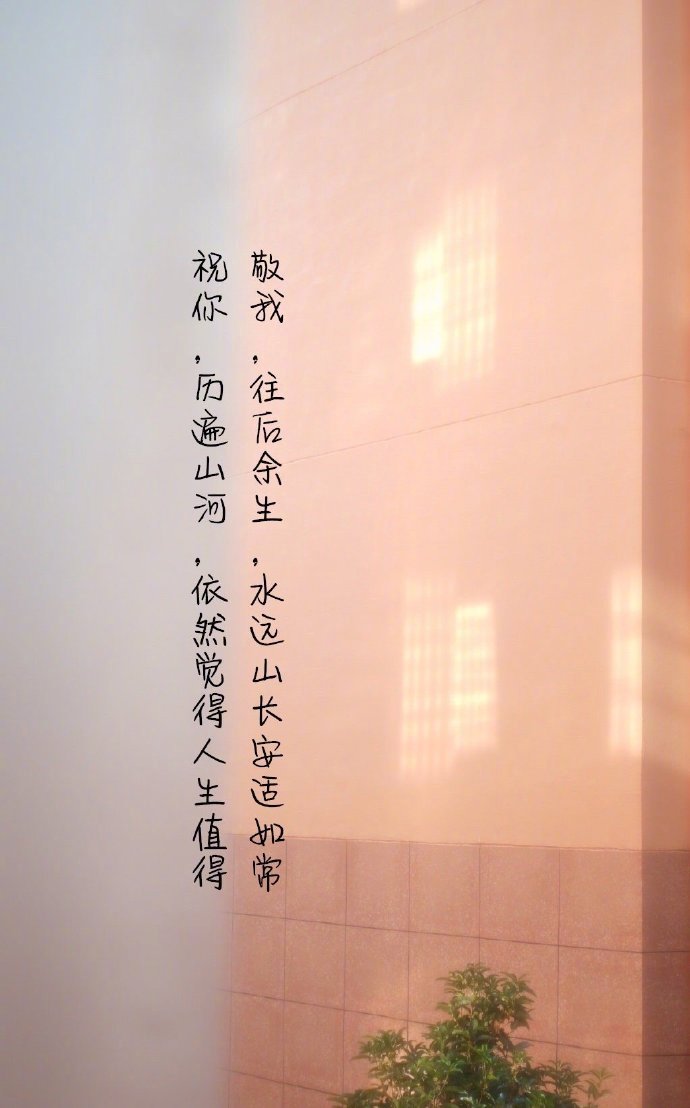 敬我，往后余生，水远山长安适如常
祝你，历遍山河，依然觉得人生值得